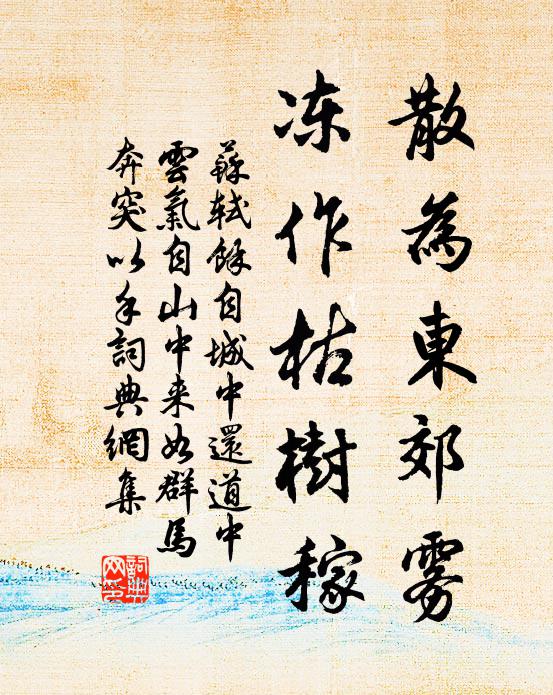 散為東郊霧
冻作枯樹稼
蘇軾餘自城中還道中
雲氣自山中来如群馬
奔突以手詞典網集
詞典網集